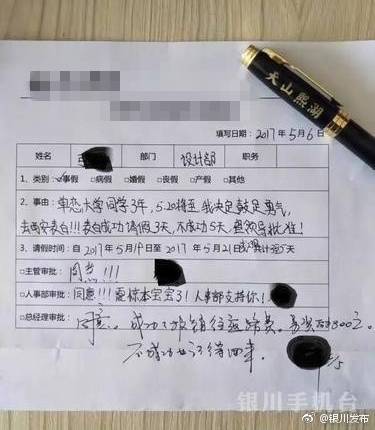 天山熙湖
填写日期: 2017年5月6日
姓名 部门 设计部 职务
1、类别: ☑事假 □病假 □婚假 □丧假 □产假 □其他
2、事由: 单恋大学同学3年, 5.20将至, 我决定鼓足勇气,
去西安表白!!! 表白成功请假3天, 不成功5天, 恳领导批准!
3、请假时间: 自2017年5月19日至2017年5月21日 共计 5天
□主管审批: 同意!!!
□人事部审批: 同意!!! 支持你!
□总经理审批: 同意。成功了报销往返路费, 300元。
不成功也记得回来。
银川手机台
@银川发布